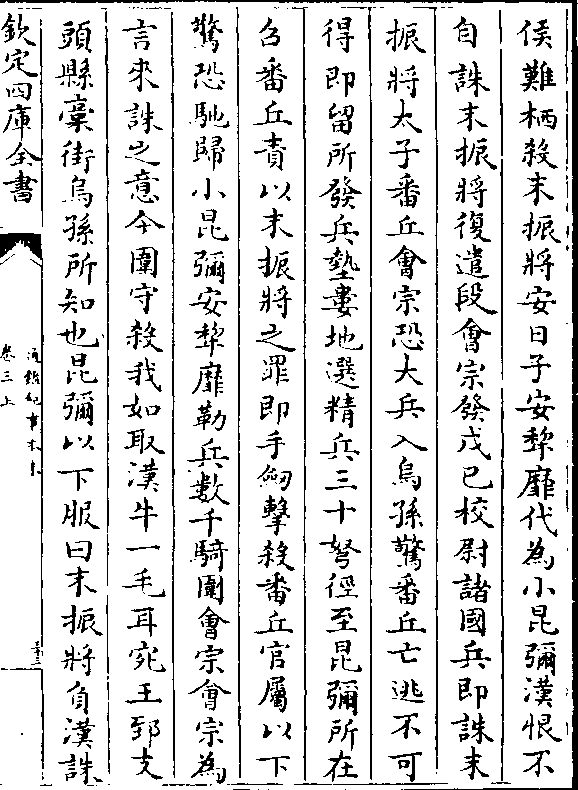 侯難栖殺末振將安日子安犂靡代為小昆彌漢恨不
自誅末振將復遣段會宗發戊已校尉諸國兵即誅末
振將太子番丘會宗恐大兵入烏孫驚番丘亡逃不可
得即留所發兵墊婁地選精兵三十弩徑至昆彌所在
召番丘責以末振將之罪即手劒擊殺番丘官屬以下
驚恐馳歸小昆彌安犂靡勒兵數千騎圍會宗會宗為
言來誅之意今圍守殺我如取漢牛一毛耳宛王郅支
頭縣稾街烏孫所知也昆彌以下服曰末振將負漢誅
欽定四庫全書
通鑑紀事本末
卷三上